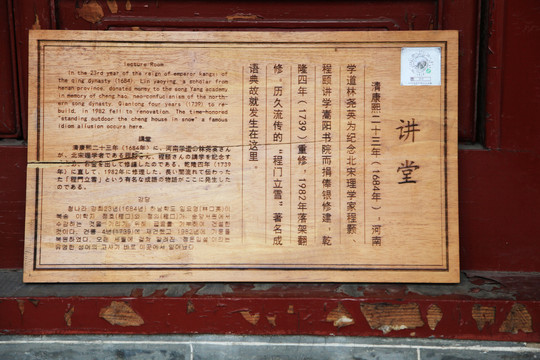 讲堂
清康熙二十三年（1684年），河南
学道林尧英为纪念北宋理学家程颢、
程颐讲学嵩阳书院而捐俸银修建，乾
隆四年（1739）重修，1982年落架翻
修，历久流传的“程门立雪”著名成
语典故就发生在这里。
lecture Room
In the 23rd year of the reign of emperor kangxi of
the qing dynasty (1684), Lin yanying, a scholar from
henan province, donated money to the song Yang academy
in memory of cheng hao, neo-confucianism of the north-
ern song dynasty. Qianlong four years (1739) to re-
build, in 1982 fell to renovation. The time-honored
"standing outside the cheng house in snow" a famous
idiom allusion occurs here.
講堂
清康熙二十三年(1684年)に、河南学道の林尭英さん
が、北宋理学者である程颢さん、程頤さんの講学を記念す
るため、お金を出して修建したのである。乾隆四年(1739
年)に直して、1982年に修理した。長い間流れて伝わった
「程門立雪」という有名な成語の物語がここに発生した
のである。
강당